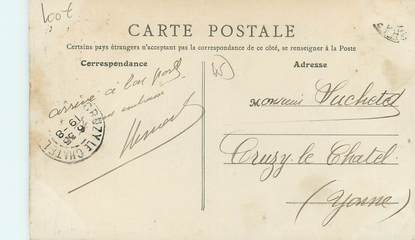 CARTE POSTALE
Certains pays étrangers n'acceptant pas la correspondance de ce côté, se renseigner à la Poste
Correspondance
Adresse
arrivé à bon port
Monsieur Suchetet
Cruzy le Chatel
(Yonne)
CRUZY-LE-CHATEL